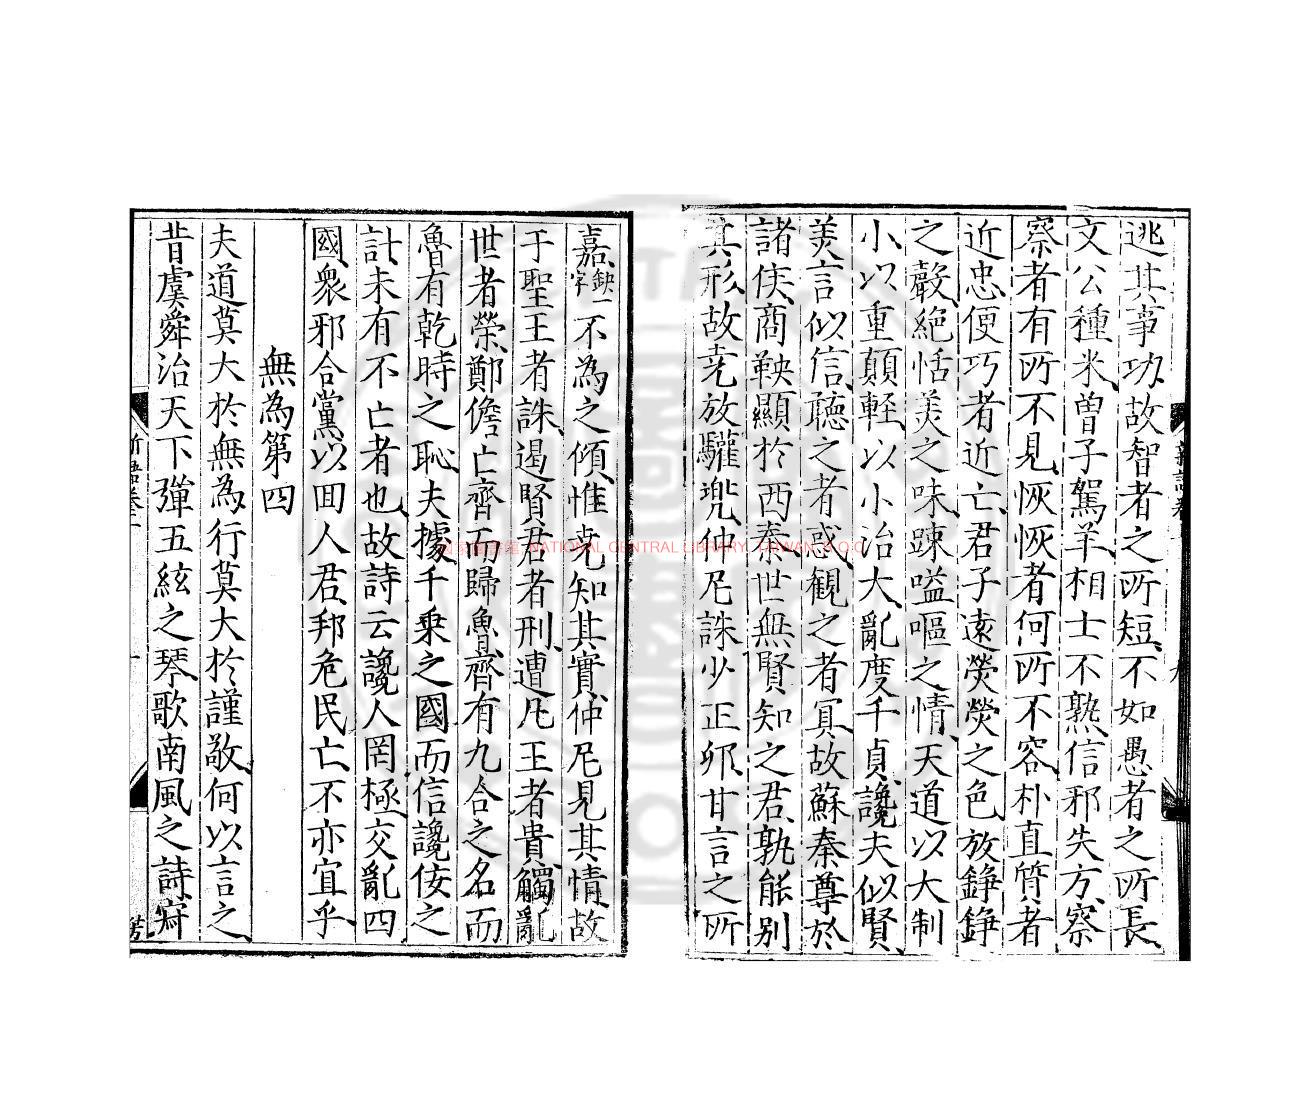 逃其事功故智者之所短不如愚者之所長
文公種米曾子駕羊相士不熟信邪失方察
察者有所不見恢恢者何所不容朴直質者
近忠便巧者近亡君子遠熒熒之色放錚錚
之聲絕恬美之味踈嗌嘔之情天道以大制
小以重顛輕以小治大亂度千貞讒夫似賢
美言似信聽之者惑觀之者冥故蘇秦尊於
諸侯商鞅顯於西秦世無賢知之君孰能别
其形故堯放驩兜仲尼誅少正卯甘言之所
嘉缺一字不為之傾惟堯知其實仲尼見其情故
于聖王者誅遏賢君者刑遭凡王者貴觸亂
世者榮鄭儋亡齊而歸魯齊有九合之名而
魯有乾時之恥夫據千乗之國而信讒佞之
計未有不亡者也故詩云讒人罔極交亂四
國衆邪合黨以囬人君邦危民亡不亦宜乎
無為第四
夫道莫大於無為行莫大於謹敬何以言之
昔虞舜治天下彈五絃之琴歌南風之詩寂
新語卷
NATIONAL CENTRAL LIBRARY, TAIWAN, R.O.C